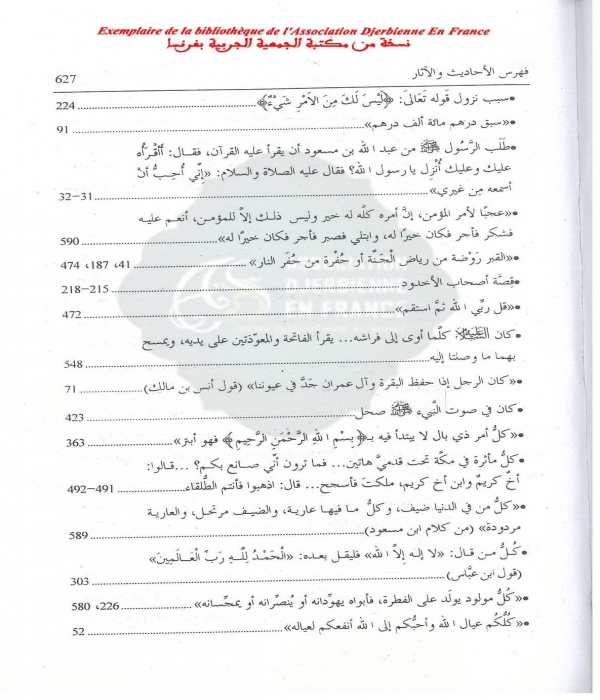 Exemplaire de la bibliothèque de l'Association Djerbienne En France
نسخة من مكتبة الجمعية الجربية بفرنسا
فهرس الأحاديث والآثار 627
•سبب نزول قوله تَعَالَى: ﴿لَيْسَ لَكَ مِنَ الاَمْرِ شَيْءٌ﴾ ........ 224
•«سبق درهم مائة ألف درهم» ........ 91
•طَلَب الرَّسُول ﷺ من عبد الله بن مسعود أن يقرأ عليه القرآن، فقـال: أأقْـرأُه
عليك وعليك أُنْزِل يا رسول الله؟ فقال عليه الصلاة والسلام: «إنِّي أُحِبُّ أنْ
أسمعه مِن غيري» ........ 31-32
•«عجبًا لأمر المؤمن، إنَّ أمره كلَّه له خير وليس ذلـك إلاَّ للمؤمـن، أنعـم عليـه
فشكر فأجر فكان خيرًا له، وابتلي فصبر فأجر فكان خيرًا له» ........ 590
•«القبر رَوْضة من رياض الْجَنَّة أو حُفْرة من حُفَر النار» ........ 41، 187، 474
•قِصَّة أصحاب الأخدود ........ 215-218
•«قل ربِّي الله ثمَّ استقم» ........ 472
•كان التَّلِيْكُلاَ كلَّما أوى إلى فراشه... يقرأ الفاتحة والمعوّذتين على يديه، ويمسح
بهما ما وصلتا إليه ........ 548
•«كان الرجل إذا حفظ البقرة وآل عمران جَدَّ في عيوننا» (قول أنس بن مالك) ........ 71
•كان في صوت النَّبيء ﷺ صحل ........ 423
•«كلُّ أمر ذي بال لا يبتدأ فيه بـ﴿بِسْمِ اللهِ الرَّحْمَنِ الرَّحِيمِ﴾ فهو أبتر» ........ 363
•كلُّ مأثرة في مكَّة تحت قدميَّ هاتين... فما ترون أنِّي صانع بكم؟ ...قالوا:
أخٌ كريمٌ وابن أخ كريم، ملكتَ فأسجح... قال: اذهبوا فأنتم الطُّلقاء ........ 491-492
•«كلُّ من في الدنيا ضيف، وكلُّ مـا فيهـا عارية، والضيـف مرتحـل، والعارية
مردودة» (من كلام ابن مسعود) ........ 589
•كُـلُّ مـن قـال: «لا إلـه إلاَّ الله» فليقـل بعـده: «الْحَمْـدُ لِلَّـهِ رَبِّ الْعَـالَمِينَ»
(قول ابن عبَّاس) ........ 303
•«كُلُّ مولود يولَد على الفطرة، فأبواه يهوِّدانه أو يُنصِّرانه أو يمجّسانه» ........ 226، 580
•«كُلُّكُم عيال الله وأحبُّكم إلى الله أنفعكم لعياله» ........ 52